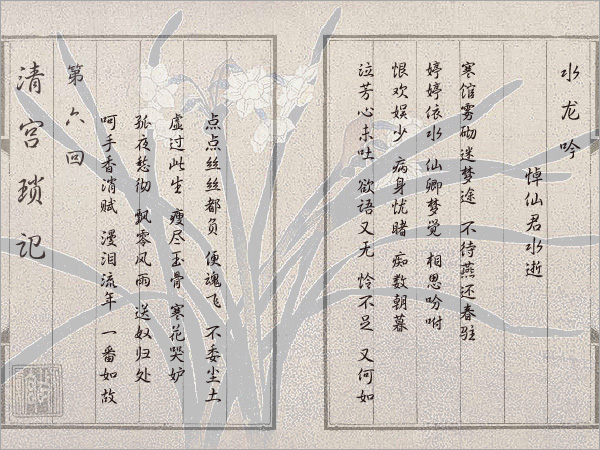 水龙吟
悼仙君水逝
寒馆雾砌迷梦途 不待燕还春驻
婷婷依水 仙卿梦觉 相思吩咐
恨欢娱少 病身忧睹 痴数朝暮
泣芳心未吐 欲语又无 怜不足 又何如
点点丝丝都负 便魂飞 不委尘土
虚过此生 瘦尽玉骨 寒花哭妒
孤夜愁彻 飘零风雨 送奴归处
呵手香消赋 漫泪流年 一番如故
第六回
清宫琐记